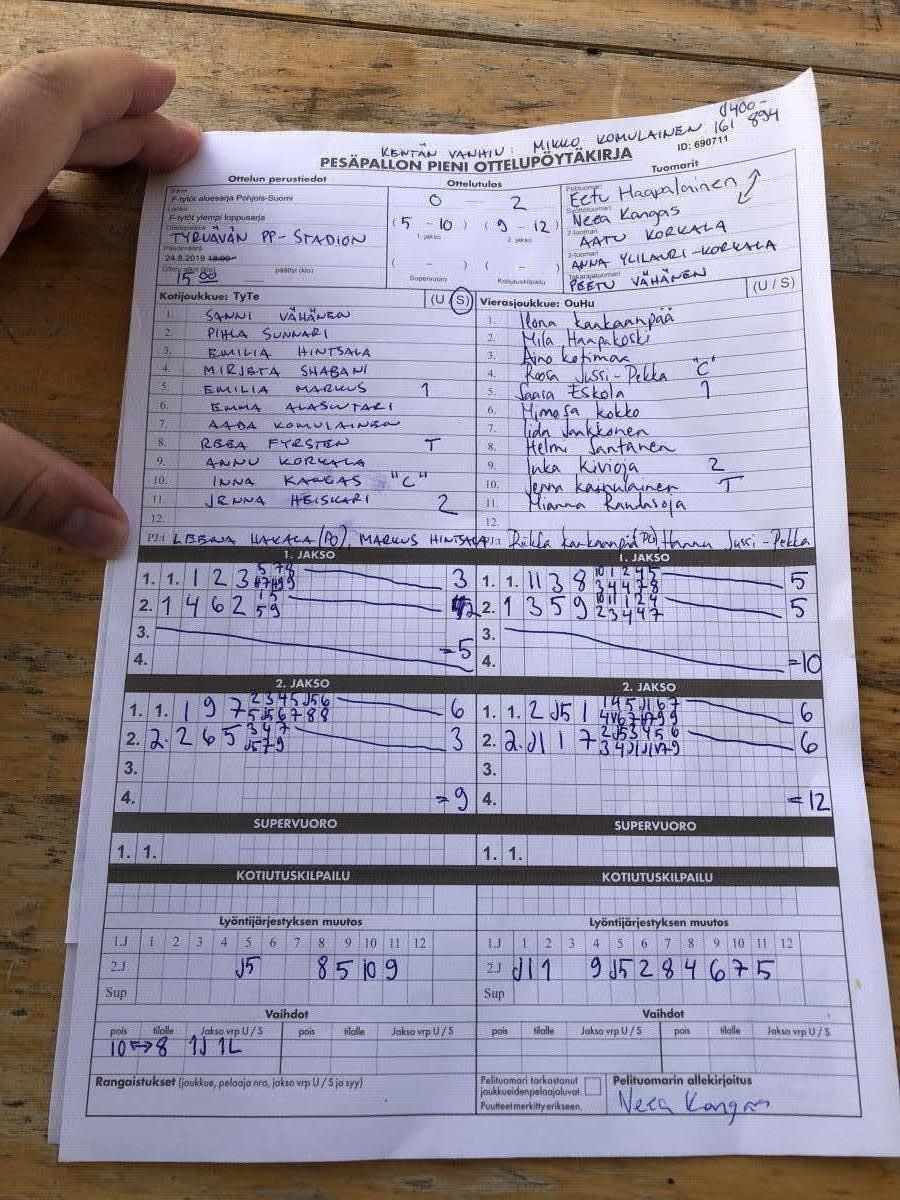 0400-
KENTÄN VANHIN: MIKKO KOMULAINEN 161 894
PESÄPALLON PIENI OTTELUPÖYTÄKIRJA
ID: 690711
Ottelun perustiedot
Ottelutulos
Tuomarit
Sarja
F-tytöt aluesarja Pohjois-Suomi
F-tytöt ylempi loppusarja
TYRVÄVÄN PP-STADION
Päivämäärä
24.8.2019 18:00
päättyi (klo)
15 00
0 - 2
(5 - 10) (9 - 12)
1. jakso 2. jakso
( - ) ( - )
Supervuoro Kotiutuskilpailu
Pelituomari
Eetu Haapalainen
Syöttötuomari
Neea Kangas
2-tuomari
AATU KORKALA
3-tuomari
ANNA YLILAURI-KORKALA
Takarajatuomari
PEETU VÄHÄNEN
Kotijoukkue: TyTe (U / S)
1. SANNI VÄHÄNEN
2. PIHLA SUNNARI
3. EMILIA HINTSALA
4. MIRJETA SHABANI
5. EMILIA MARKUS 1
6. EMMA ALASUUTARI
7. AADA KOMULAINEN
8. REEA FYRSTEN T
9. ANNU KORKALA
10. INNA KANGAS "C"
11. JENNA HEISKARI 2
12.
PJ:t LEENA HAKALA (PO), MARKUS HINTSALA
Vierasjoukkue: OuHu (U / S)
1. Ilona Kankaanpää
2. Mila Haapakoski
3. Aino Kotimaa
4. Roosa Jussi-Pekka "C"
5. Saara Eskola 1
6. Mimosa Kokko
7. Iida Jaakkonen
8. Helmi Santanen
9. Inka Kivioja 2
10. Jenna T
11. Mianna
12.
PJ:t Riikka Kankaanpää (PO) Hannu Jussi-Pekka
1. JAKSO
1. 1. 1 2 3 3
2. 1 4 6 2 2
3.
4. =5
1. JAKSO
1. 1. 11 3 8 5
2. 1 3 5 9 5
3.
4. =10
2. JAKSO
1. 1. 1 9 7 6
2. 2. 2 6 5 3
3.
4. =9
2. JAKSO
1. 1. 2 J5 1 6
2. 2. J1 1 7 6
3.
4. =12
SUPERVUORO
1. 1.
SUPERVUORO
1. 1.
KOTIUTUSKILPAILU
KOTIUTUSKILPAILU
Lyöntijärjestyksen muutos
1.J 1 2 3 4 5 6 7 8 9 10 11 12
2.J J5 8 5 10 9
Sup
Lyöntijärjestyksen muutos
1.J 1 2 3 4 5 6 7 8 9 10 11 12
2.J J1 1 9 J5 2 8 4 6 7 5
Sup
Vaihdot
pois tilalle Jakso vrp U / S pois tilalle Jakso vrp U / S
10 ↔ 8 1J 1L
Vaihdot
pois tilalle Jakso vrp U / S pois tilalle Jakso vrp U / S
Rangaistukset (joukkue, pelaaja nro, jakso vrp U / S ja syy)
Pelituomari tarkastanut
joukkueiden pelaajaluvat.
Puutteet merkitty erikseen.
Pelituomarin allekirjoitus
Neea Kangas